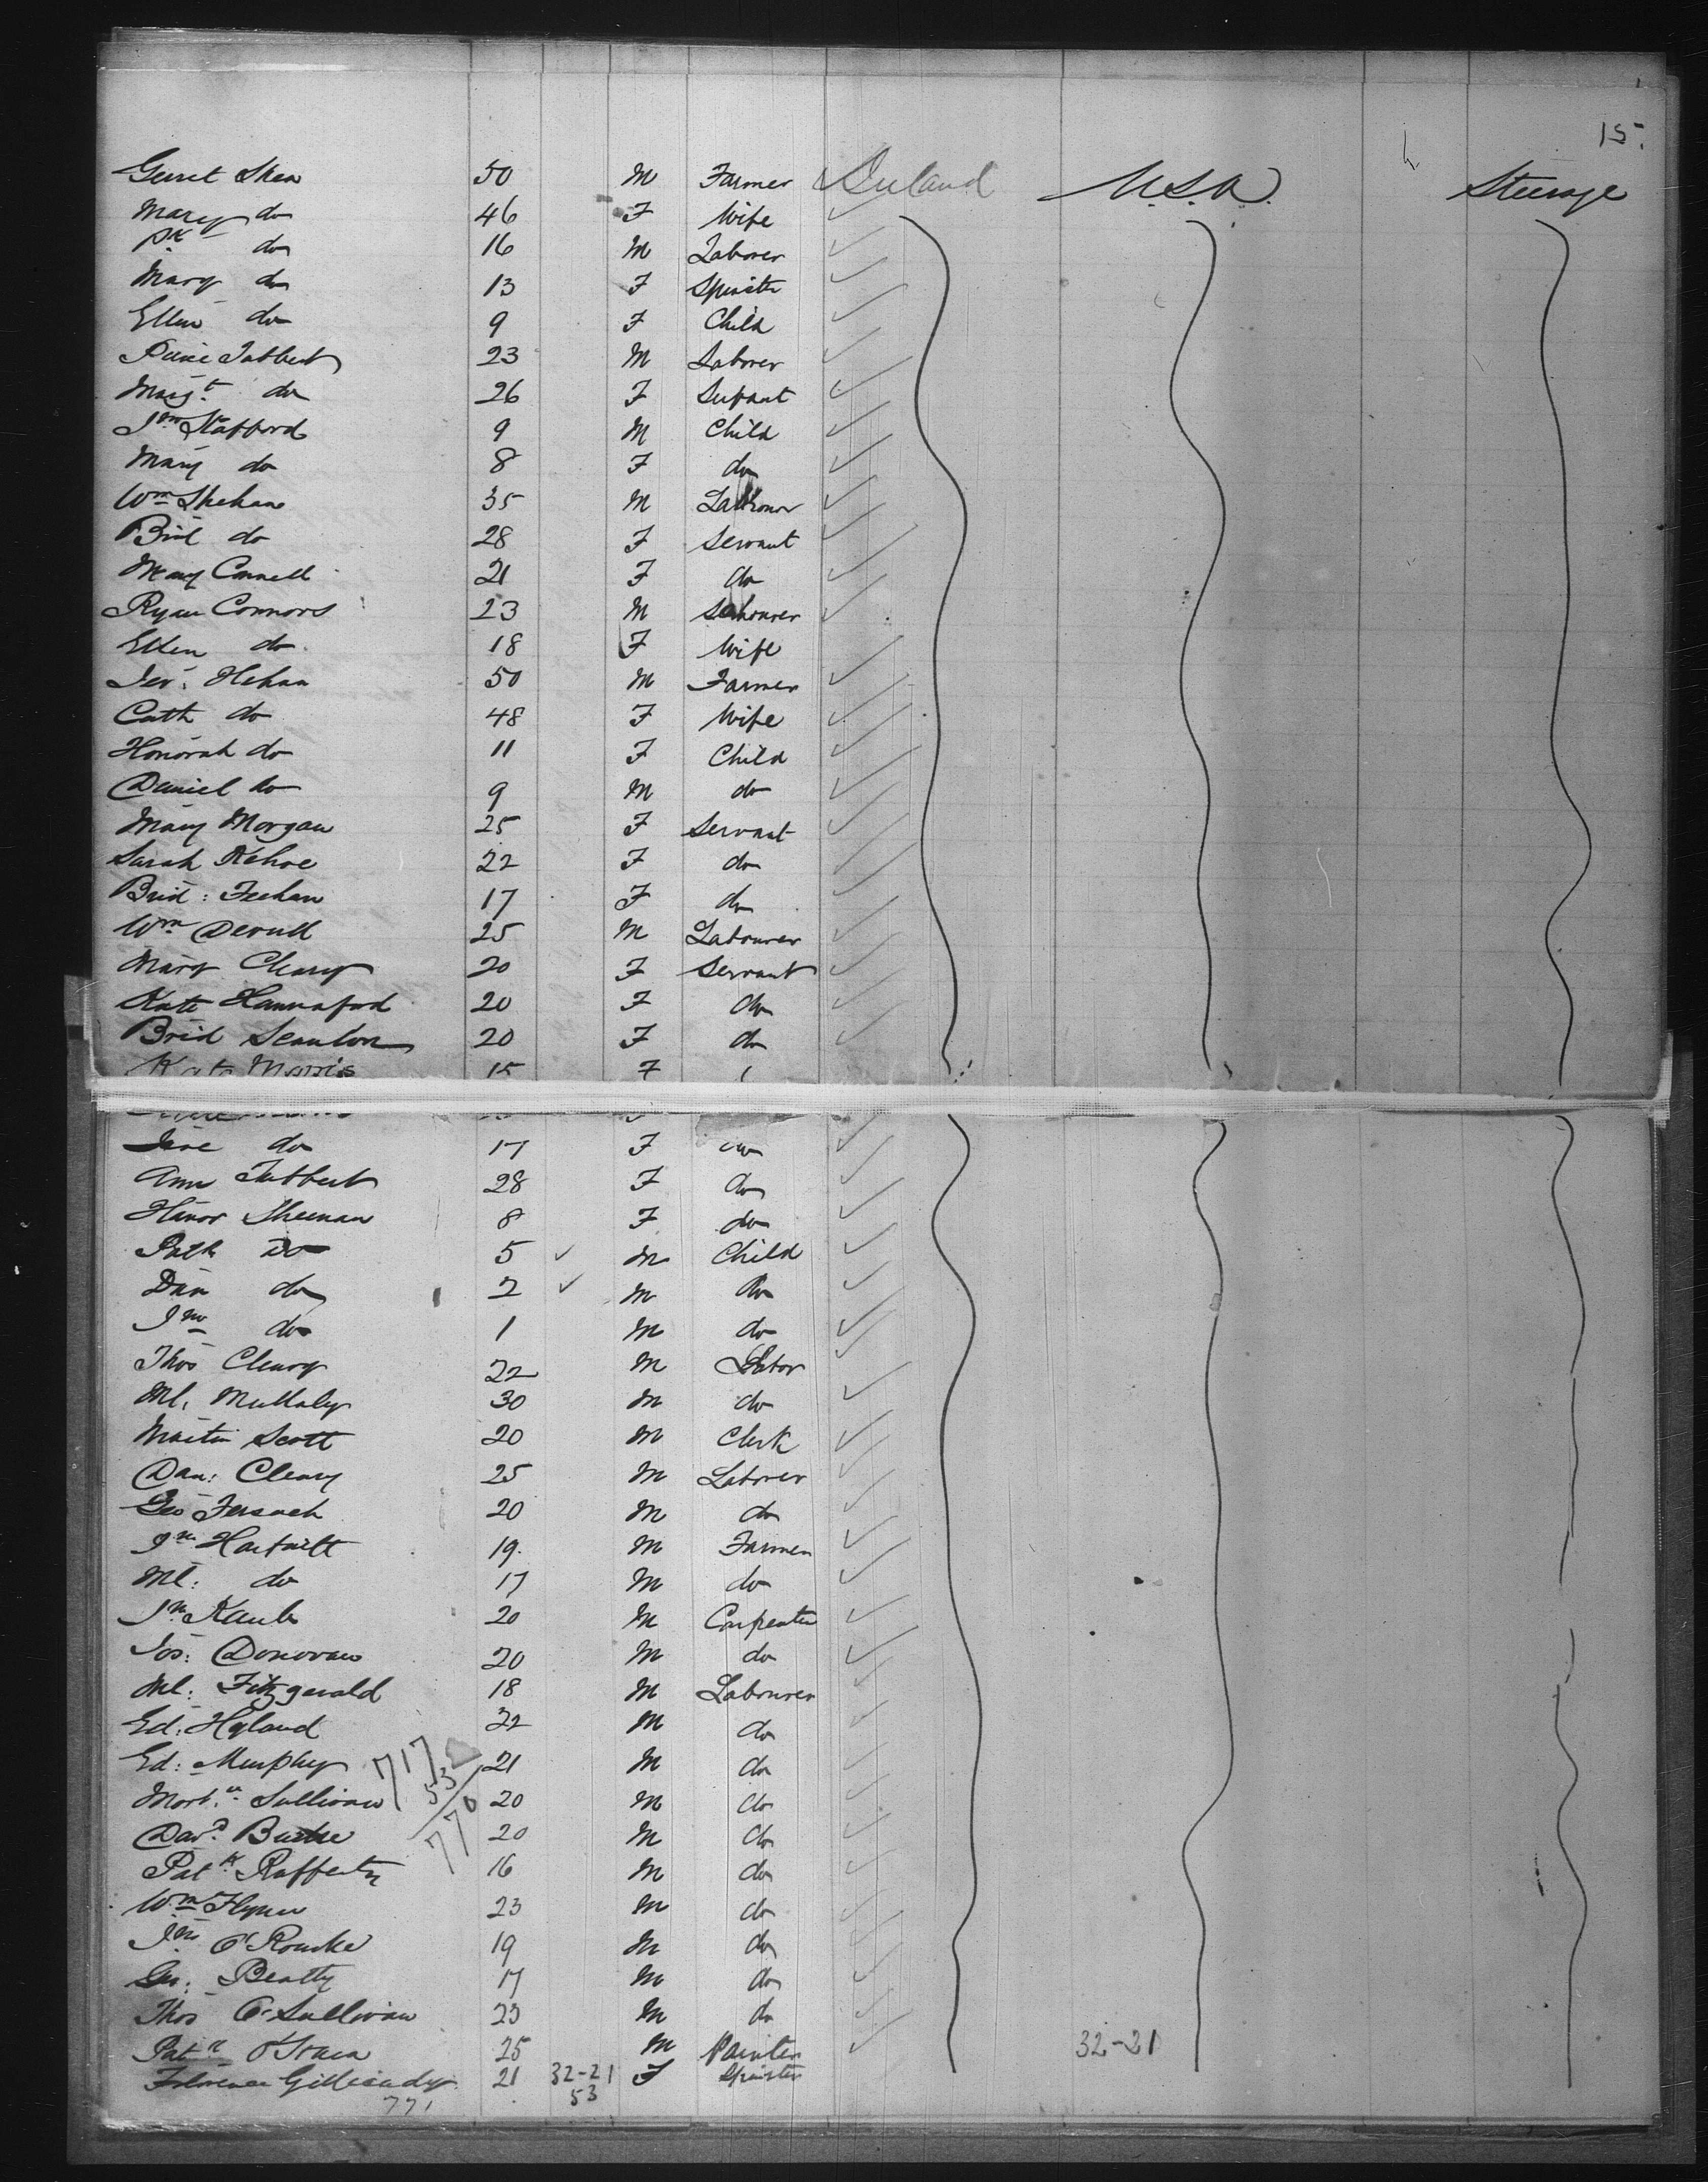 15.
Gerret Shea 50 M Farmer Ireland U.S.A. Steerage
Mary do 46 F Wife
Pk do 16 M Laborer
Mary do 13 F Spinster
Ellen do 9 F Child
23 M Laborer
Margt do 26 F Servant
Jno Stafford 9 M Child
Mary do 8 F do
Wm Shehan 35 M Labourer
Brid do 28 F Servant
Mary Connell 21 F do
Ryan Connors 23 M Labourer
Ellen do 18 F Wife
Jer: Hehan 50 M Farmer
Cath do 48 F Wife
Honorah do 11 F Child
Daniel do 9 M do
Mary Morgan 25 F Servant
Sarah Kehoe 22 F do
Brid: Feehan 17 F do
Wm 25 M Labourer
Mary Cleary 20 F Servant
Kate Hannaford 20 F do
Brid Scanlon 20 F do
Kate Morris 15 F
do 17 F do
Ann 28 F do
Honor Sheenan 8 F do
Patk do 5 M Child
Dan do 2 M do
Jno do 1 M do
Thos Cleary 22 M Labor
Ml. Mullaly 30 M do
Martin Scott 20 M Clerk
Dan: Cleary 25 M Laborer
Geo 20 M do
Jno 19. M Farmer
Ml: do 17 M do
Jno 20 M Carpenter
Jos: Donovan 20 M do
Ml: Fitzgerald 18 M Labourer
Ed: Hyland 22 M do
Ed: Murphy 717 21 M do
Sullivan 53 20 M do
Davd Burke 770 20 M do
Patk Rafferty 16 M do
Wm Flynn 23 M do
Jno O'Rourke 19 M do
Geo: Beatty 17 M do
Thos O'Sullivan 23 M do
Patk O'Hara 25 M Painter 32-21
Florence 21 32-21 F Spinster
771 53